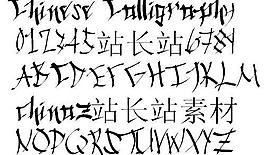 Chinese Calligraphy
012345站长站6789
ABCDEFGHIJKLM
chinaz站长站素材
NOPQRSTUVWXYZ